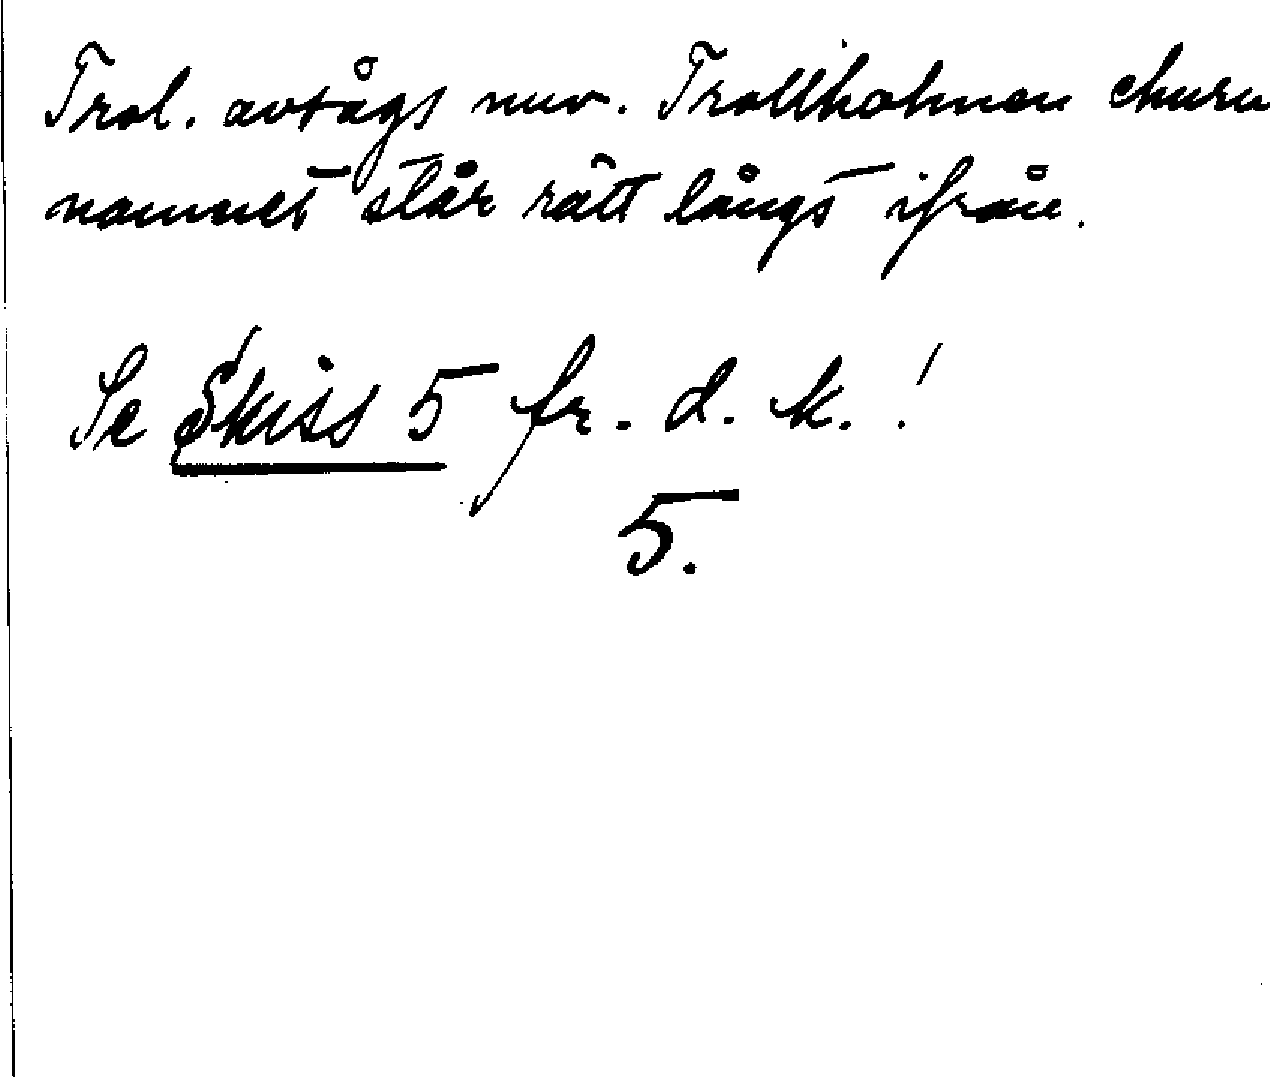 Trol. avtågs nuv. Trollholmen ehuru
namnet står rätt långt ifrån.
Se Skiss 5 fr. d. k.!
5.